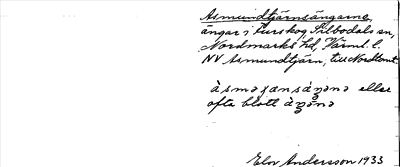 Asmundtjärnsängarne,
ängar i Furskog Silbodals sn,
Nordmarks hd, Värml. l.
NV Asmundtjärn, till Nordtomt
àsməʒansáŋənə eller
ofta blott àŋənə
Elov Andersson 1933